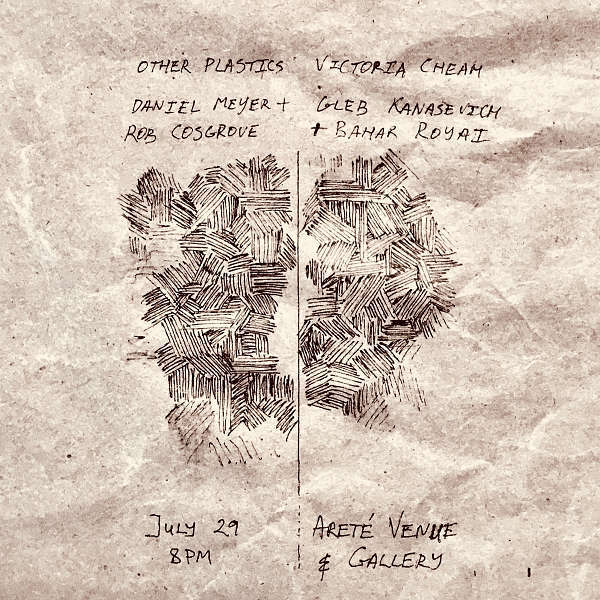 OTHER PLASTICS
DANIEL MEYER +
ROB COSGROVE
VICTORIA CHEAH
GLEB KANASEVICH
+ BAHAR ROYAI
JULY 29
8PM
ARETÉ VENUE
& GALLERY